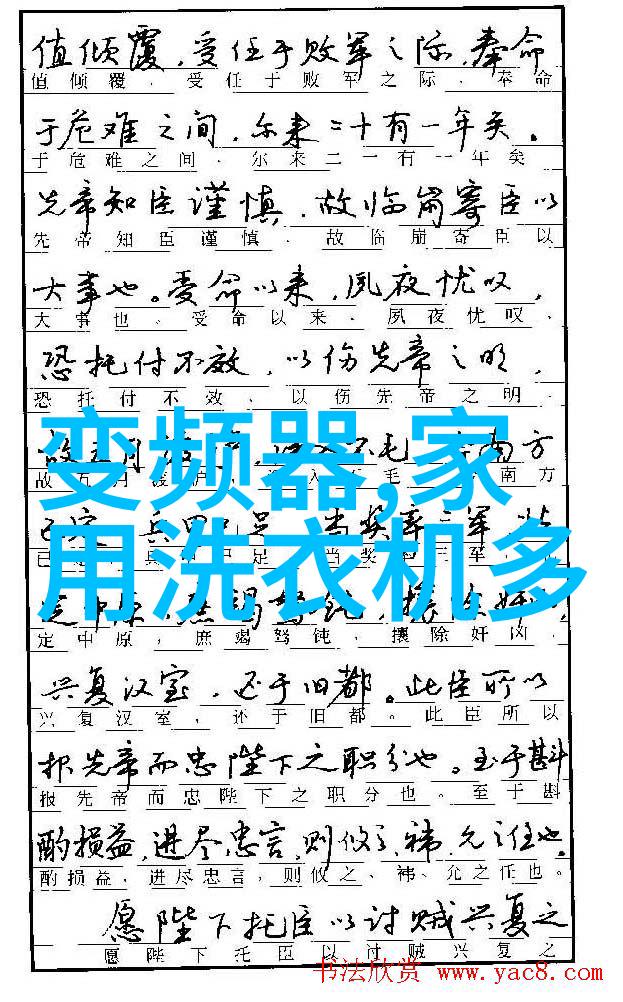 值倾覆，受任于败军之际，奉命
值倾覆，受任于败军之际，奉命
于危难之间，尔来二十有一年矣。
于危难之间，尔来二一有一年矣
先帝知臣谨慎，故临崩寄臣以
先帝知臣谨慎，故临崩寄臣以
大事也。受命以来，夙夜忧叹，
大事也。受命以来，夙夜忧叹，
恐托付不效，以伤先帝之明，
恐托付不效，以伤先帝之明，
故五月 入不毛 南方
故五月 入 毛 南方
变频器,家
用洗衣机多
已定 兵甲已足 当奖率三军
已 兵 已足 当奖 三军
定中原 庶竭驽钝，攘除奸
定中原，庶竭驽钝，攘除奸凶，
兴复汉室，还于旧都。此臣所以
兴复汉室，还于旧都。此臣所以
报先帝而忠陛下之职分也。至于斟
报先帝而忠陛下之职分也。至于斟
酌损益，进尽忠言，则攸之、祎、允之任也。
酌损益，进尽忠言，则攸之、祎、允之任也。
愿陛下托臣以讨贼兴复之
愿陛下托臣以讨贼兴复之
书法欣赏 www.yac8.com